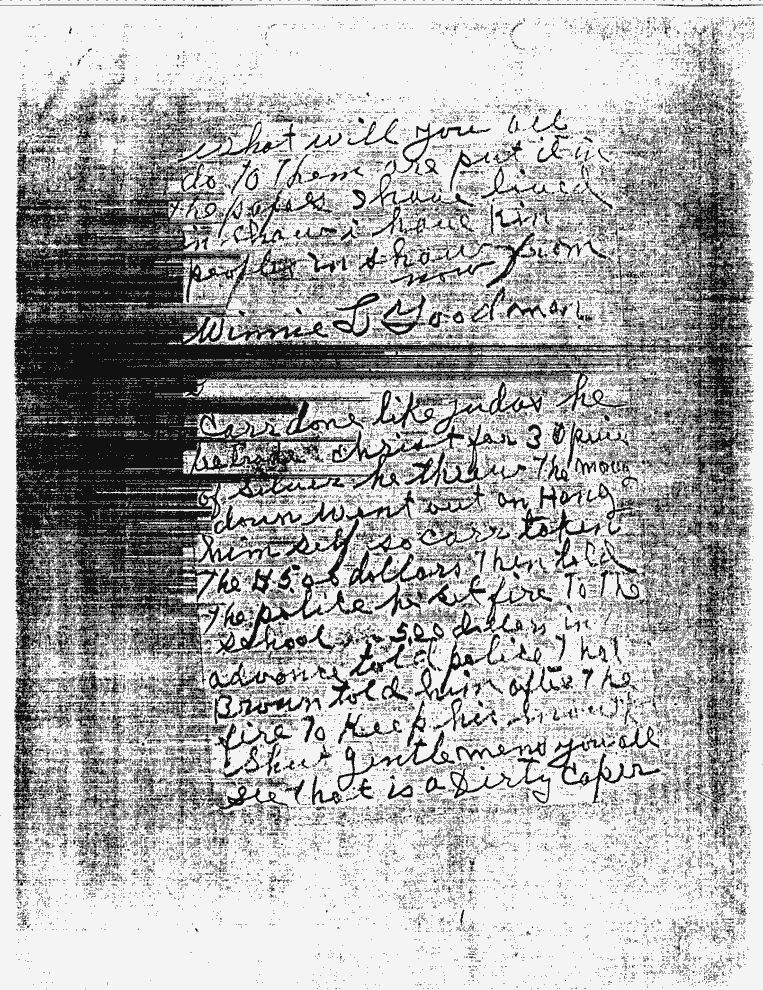 what will you all
do To Them are put it in
The papers I have lived
in Shaw i have kin
people in Shaw from
now
Winnie L Goodman
Carr done like judas he
betrayed christ for 30 piece
of Silver he threw The mony
down Went out an Hang
him self so Carr token
The dollors Then told
The police he set fire To The
school 500 dollars in
advance told police That
Brown told him after The
fire To Keep his mouth
Shut gentlemend you all
see That is a Dirty Caper